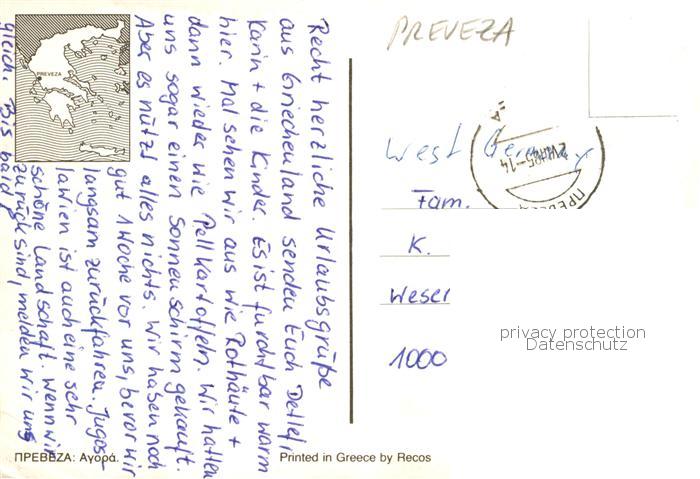 Recht herzliche Urlaubsgrüße
aus Griechenland senden Euch Detlef,
Karin + die Kinder. Es ist furchtbar warm
hier. Mal sehen wir aus wie Rothäute +
dann wieder wie Pellkartoffeln. Wir hatten
uns sogar einen Sonnenschirm gekauft.
Aber es nützt alles nichts. Wir haben noch
gut 1 Woche vor uns, bevor wir
langsam zurückfahren. Jugos-
lawien ist auch eine sehr
schöne Landschaft. Wenn wir
zurück sind, melden wir uns
gleich. Bis bald
PREVEZA
ΠΡΕΒΕΖΑ: Αγορά.
Printed in Greece by Recos
PREVEZA
West Germany
Fam.
K.
Weser
1000
ΠΡΕΒΕΖΑ
privacy protection
Datenschutz